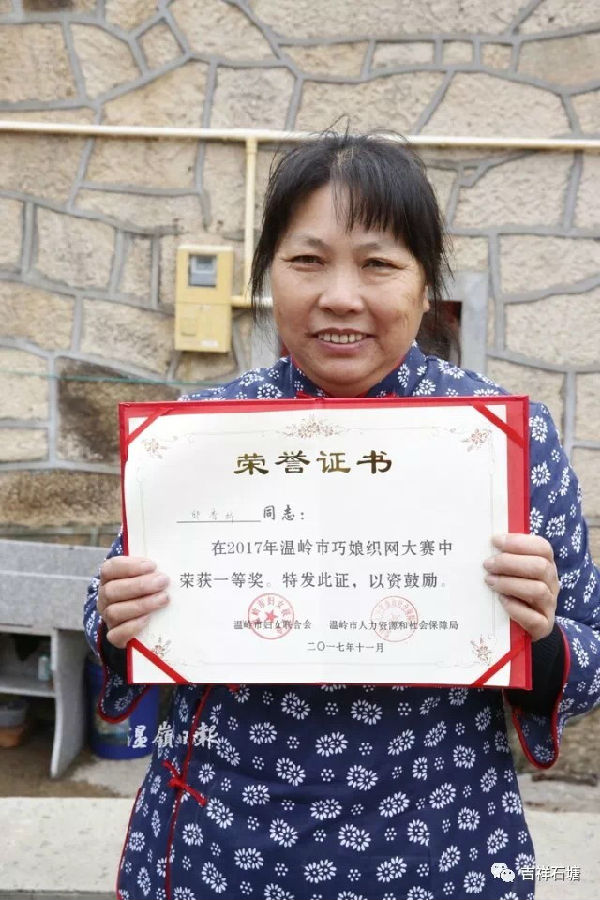 荣誉证书
同志：
在2017年温岭市巧娘织网大赛中
荣获一等奖。特发此证，以资鼓励。
温岭市妇女联合会 温岭市人力资源和社会保障局
二〇一七年十一月
温嶺日報
吉祥石塘